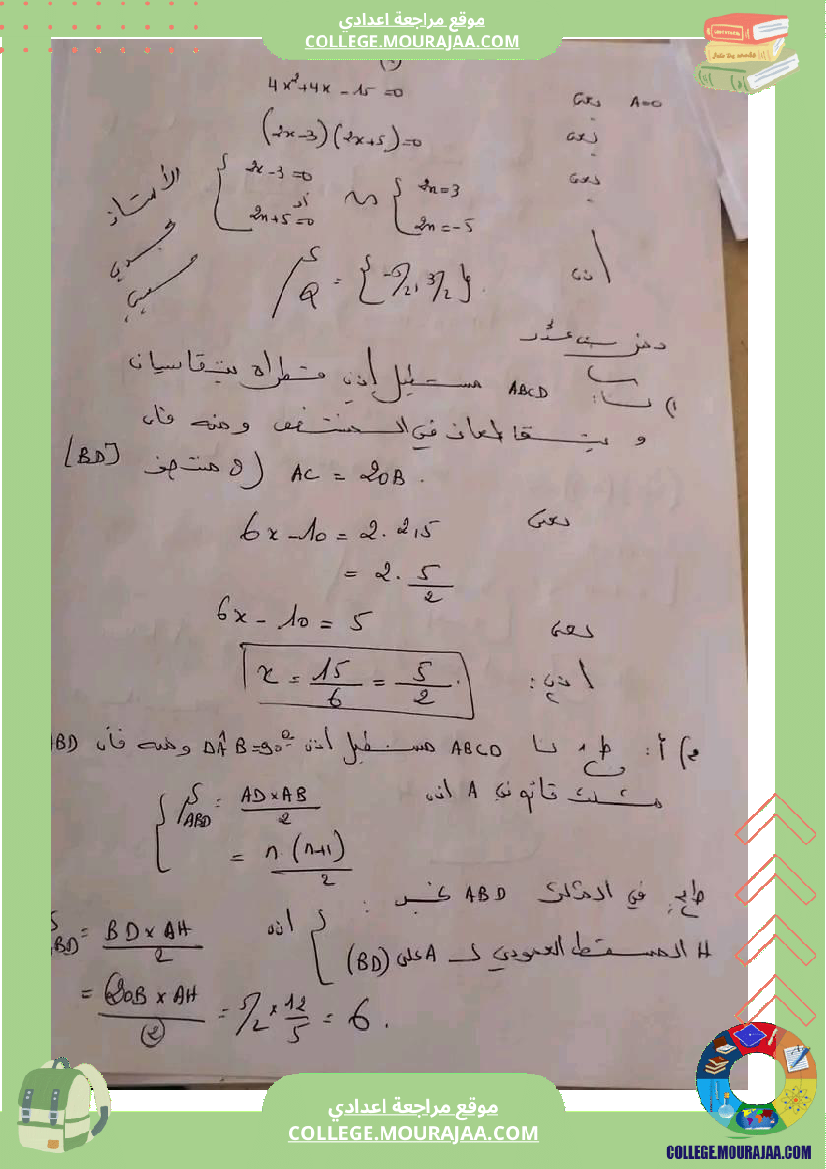 موقع مراجعة اعدادي
COLLEGE.MOURAJAA.COM
A=0 يعني 4x²+4x-15=0
يعني (2x-3)(2x+5)=0
يعني { 2x-3=0 أو 2x+5=0 ~ { 2x=3 2x=-5
الأستاذ
إذن S_Q = {-5/2, 3/2}
1) لنا: ABCD مستطيل إذن قطراه يتقاسيان
و يتقاطعان في المنتصف ومنه فإن
AC = 2OB. (O منتصف [BD]
يعني 6x-10 = 2.2,5
= 2. 5/2
يعني 6x-10 = 5
إذن: x = 15/6 = 5/2.
2) أ: ط1 لنا ABCD مستطيل إذن DÂB=90° ومنه فإن ABD
مثلث قائم في A إذن
S_ABD = AD×AB/2
= n(n+1)/2
ط2: في المثلث ABD نعتبر:
H المسقط العمودي لـ A على (BD)
إذن S_ABD = BD×AH/2
= 2OB×AH/2 = 5/2 × 12/5 = 6.
موقع مراجعة اعدادي
COLLEGE.MOURAJAA.COM
COLLEGE.MOURAJAA.COM